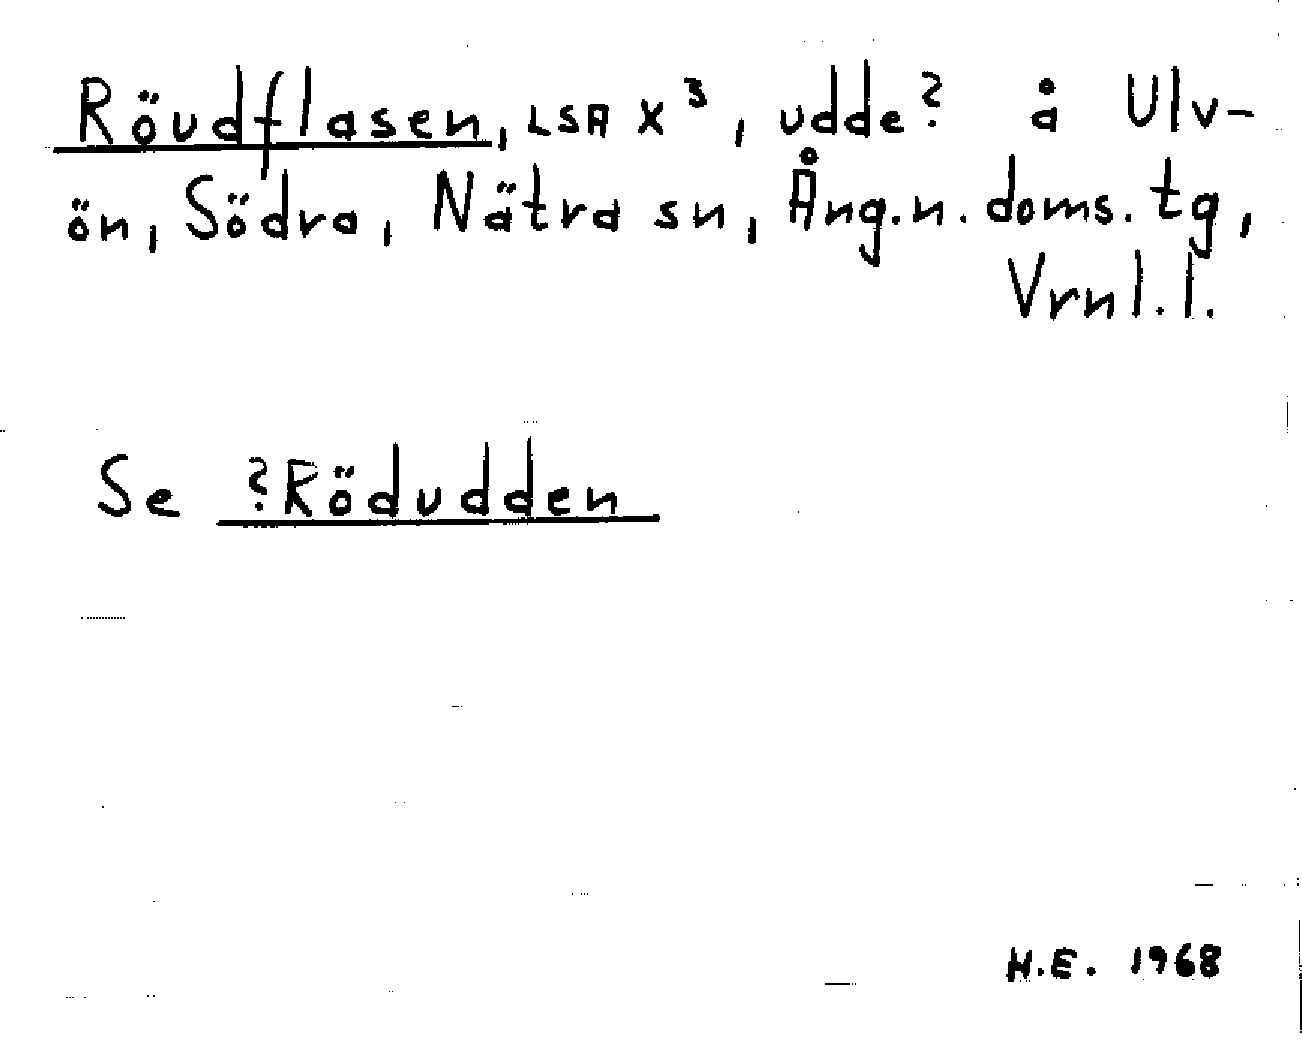 Röudflasen, LSA X³, udde? å Ulv-
ön, Södra, Nätra sn, Ång.n. doms. tg,
Vrnl.l.
Se ?Rödudden
H.E. 1968